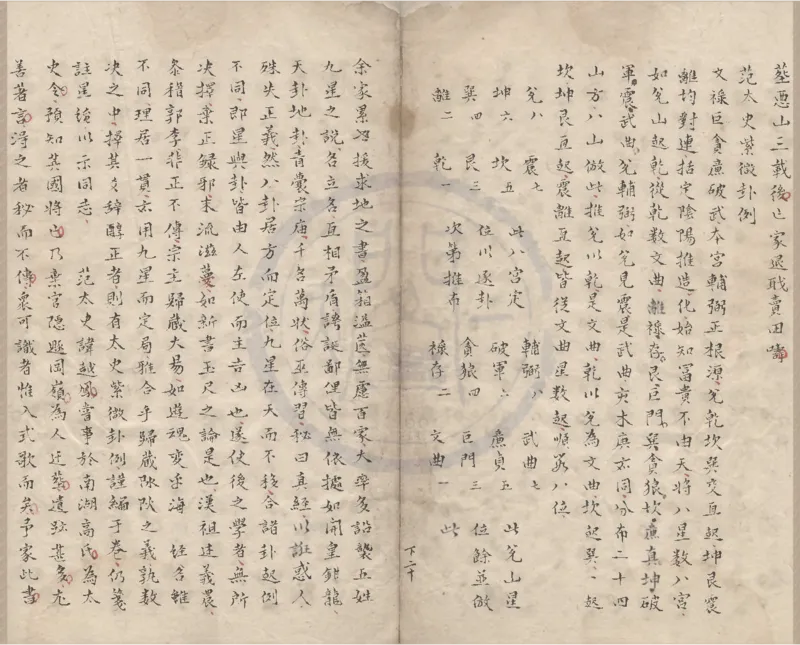 葬憑山三載後亡家退敗賣田疇
范太史紫微卦例
文祿巨貪廉破武本宮輔弼正根源兌乾坎巽交互起坤艮震
離均對連括定陰陽推造化始知冨貴不由天將八星數八宮
如兌山起乾從乾數文曲離祿存艮巨門巽貪狼坎廉真坤破
軍震武曲兌輔弼如兌見震是武曲亥未庚亦同分布二十四
山方八山倣此推兌以乾是文曲乾以兌為文曲坎起巽巽起
坎坤艮互起震離互起皆從文曲星數起順數八位
兌八　震七　此八宮定　輔弼八　武曲七　此兌山星
坤六　坎五　位以逐卦　破軍六　廉貞五　位餘並倣
巽四　艮三　次第推布　貪狼四　巨門三　此
離二　乾一　祿存二　文曲一
下二十
余家累卋援求地之書盈箱溢篋無慮百家大率多諂襲五姓
九星之說各立名互相矛盾譸誕鄙俚皆無依據如開皇錯龍
天卦地卦青囊宗庙千名萬狀俗巫傳習秘曰真經以誑惑人
殊失正義然八卦居方而定位九星在天而不移合諸卦起例
不同即星與卦皆由人左使而主吉凶也遂使後之學者無所
决擇棄正録邪末流滋蔓如新書玉尺之論是也漢祖述義農
叅稽郭李非正不傳宗主歸藏大易如遊魂变手海　姪舍雖
不同理居一貫亦用九星而定局雅合乎歸藏陳陂之義孰數
决之中擇其文辞醇正者則有太史紫微卦例謹編于卷仍箋
註星境以示同志　范太史諱越鳯嘗事於南湖高氏為太
史令預知其國將亡乃棄官隠匿囬嶺為人迁葬遺跡甚多尤
善著言淂之者秘而不傳衆可識者惟入式歌而矣予家此書